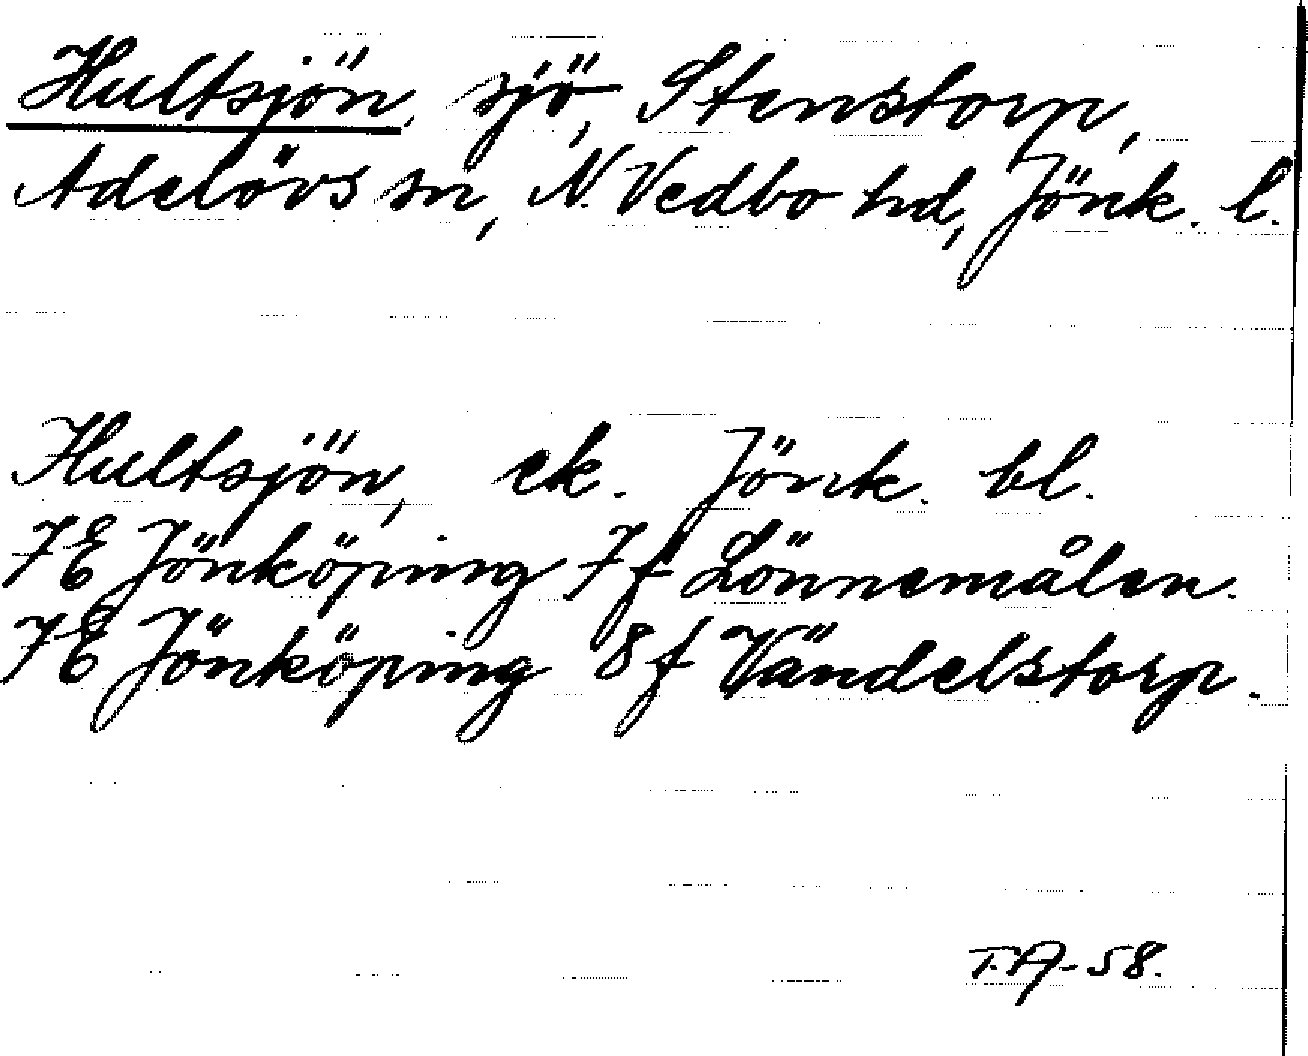 Hultsjön, sjö, Stenstorp,
Adelövs sn, N. Vedbo hd, Jönk. l.
Hultsjön, ek. Jönk. bl.
7E Jönköping 7f Lönnemålen.
7E Jönköping 8f Vändelstorp.
T.A-58.